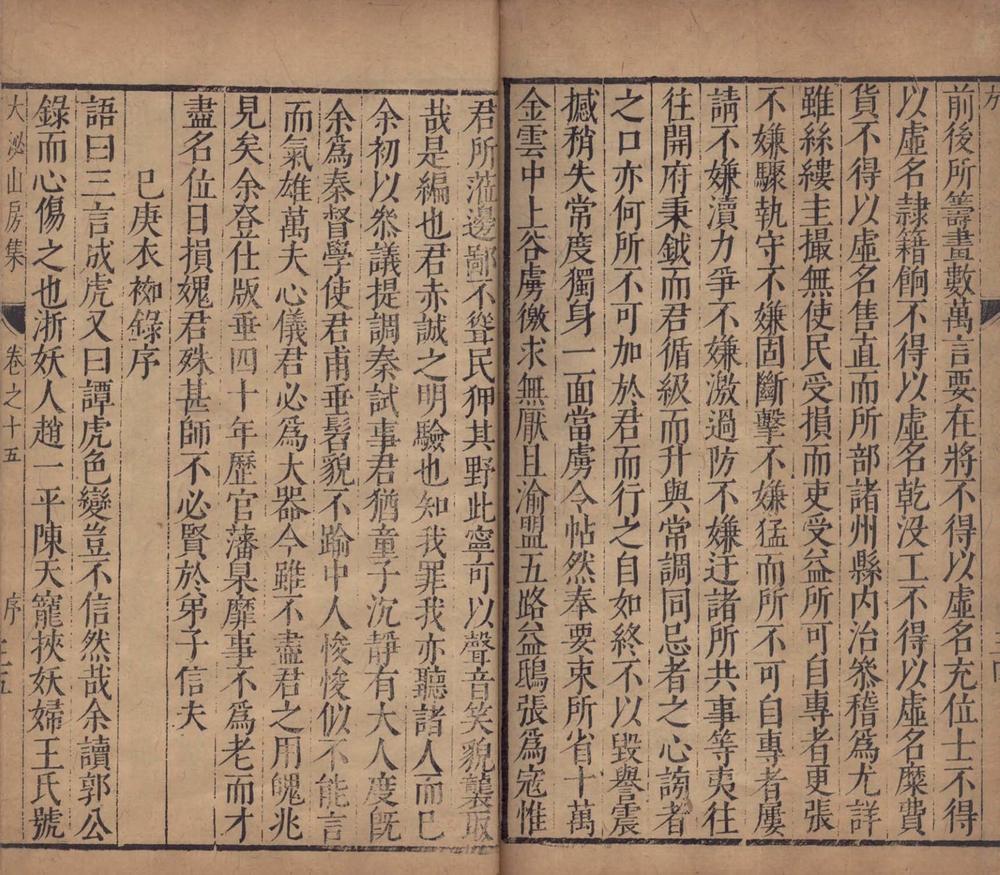 前後所籌畫數萬言要在將不得以虛名充位士不得
以虛名隸籍餉不得以虛名乾沒工不得以虛名糜費
貨不得以虛名售直而所部諸州縣內治叅稽爲尤詳
雖絲縷圭撮無使民受損而吏受益所可自專者更張
不嫌驟執守不嫌固斷擊不嫌猛而所不可自專者屢
請不嫌瀆力爭不嫌激過防不嫌迂諸所共事等夷往
往開府秉鉞而君循級而升與常調同忌者之心謗者
之口亦何所不可加於君而行之自如終不以毀譽震
撼稍失常度獨身一面當虜令帖然奉要束所省十萬
金雲中上谷虜徼求無厭且渝盟五路益鴟張爲寇惟
君所蒞邊鄙不聳民狎其野此寧可以聲音笑貌襲取
哉是編也君赤誠之明驗也知我罪我亦聽諸人而已
余初以叅議提調秦試事君猶童子沉靜有大人度旣
余爲秦督學使君甫垂髫貌不踰中人悛悛似不能言
而氣雄萬夫心儀君必爲大器今雖不盡君之用魄兆
見矣余登仕版垂四十年歷官藩臬靡事不爲老而才
盡名位日損媿君殊甚師不必賢於弟子信夫
巳庚衣袽錄序
語曰三言成虎又曰譚虎色變豈不信然哉余讀郭公
錄而心傷之也浙妖人趙一平陳天寵挾妖婦王氏號
大泌山房集 卷之十五 序